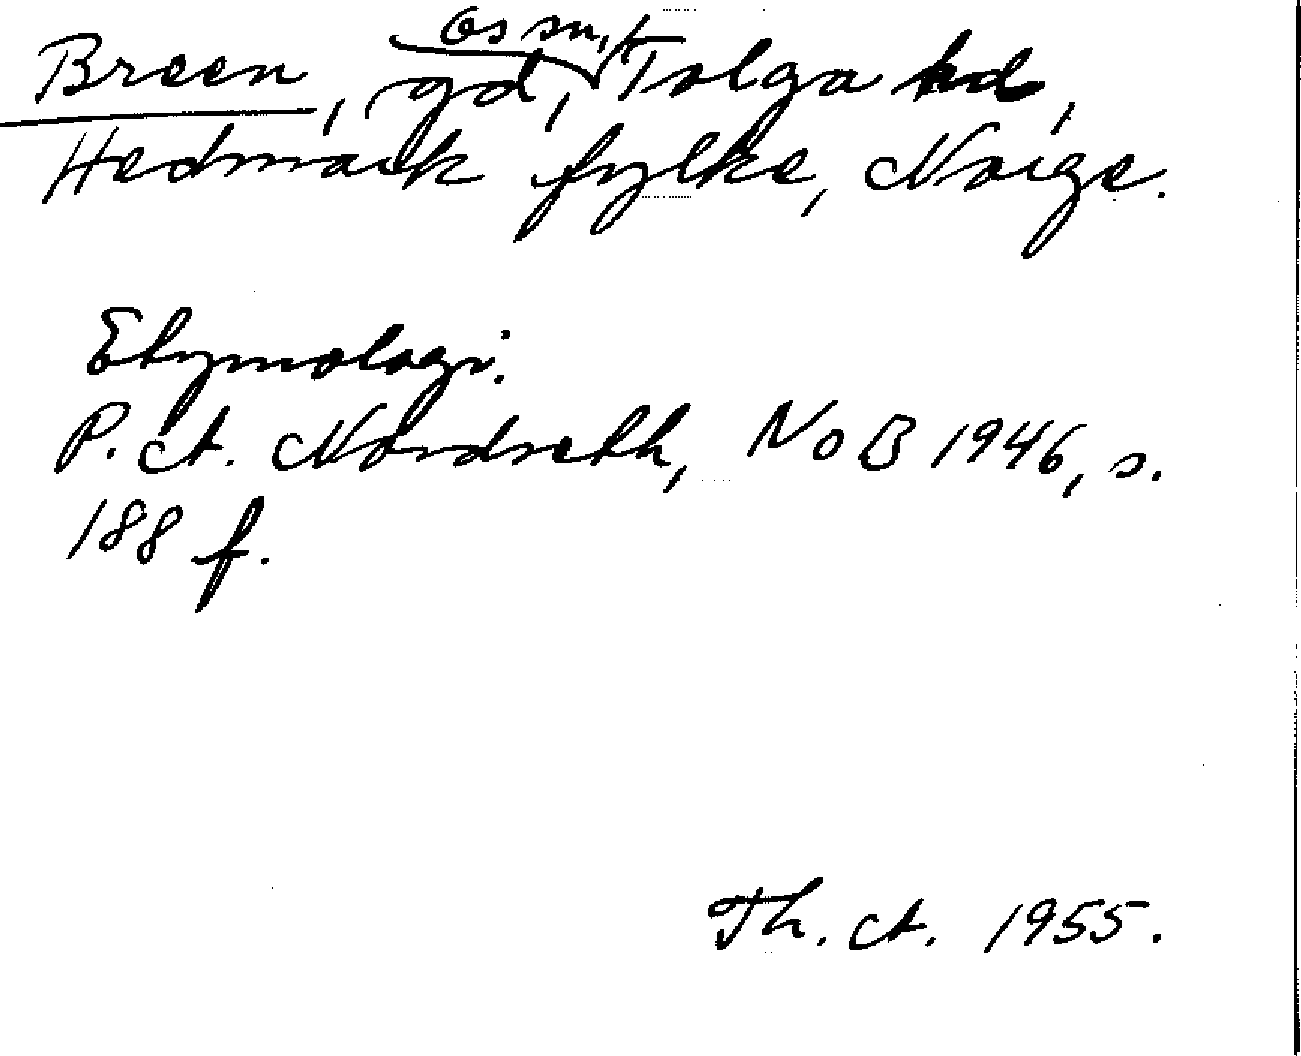 Os sn,
Breen, gd, Tolga hd,
Hedmark fylke, Norge.
Etymologi:
P. A. Nordseth, NoB 1946, s.
188 f.
Th. A. 1955.